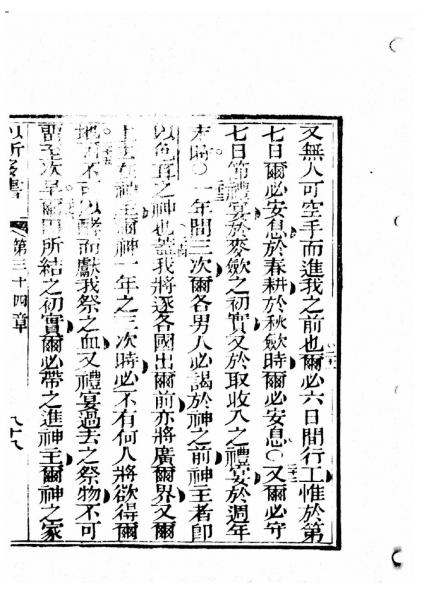 又無人可空手而進我之前也爾必六日間行工惟於第
七日爾必安息於春耕於秋斂時爾必安息〇又爾必守
七日節禮宴於麥斂之初實又於取收入之禮宴於週年
末時〇一年間三次爾各男人必謁於神之前神主者即
以色耳之神也蓋我將逐各國出爾前亦將廣爾界又爾
上去在神主爾神一年之三次時必不有何人將欲得爾
地 不可以酵而獻我祭之血又禮宴過去之祭物不可
留至次早爾田所結之初實爾必帶之進神主爾神之家
以所多書 第三十四章 九十八